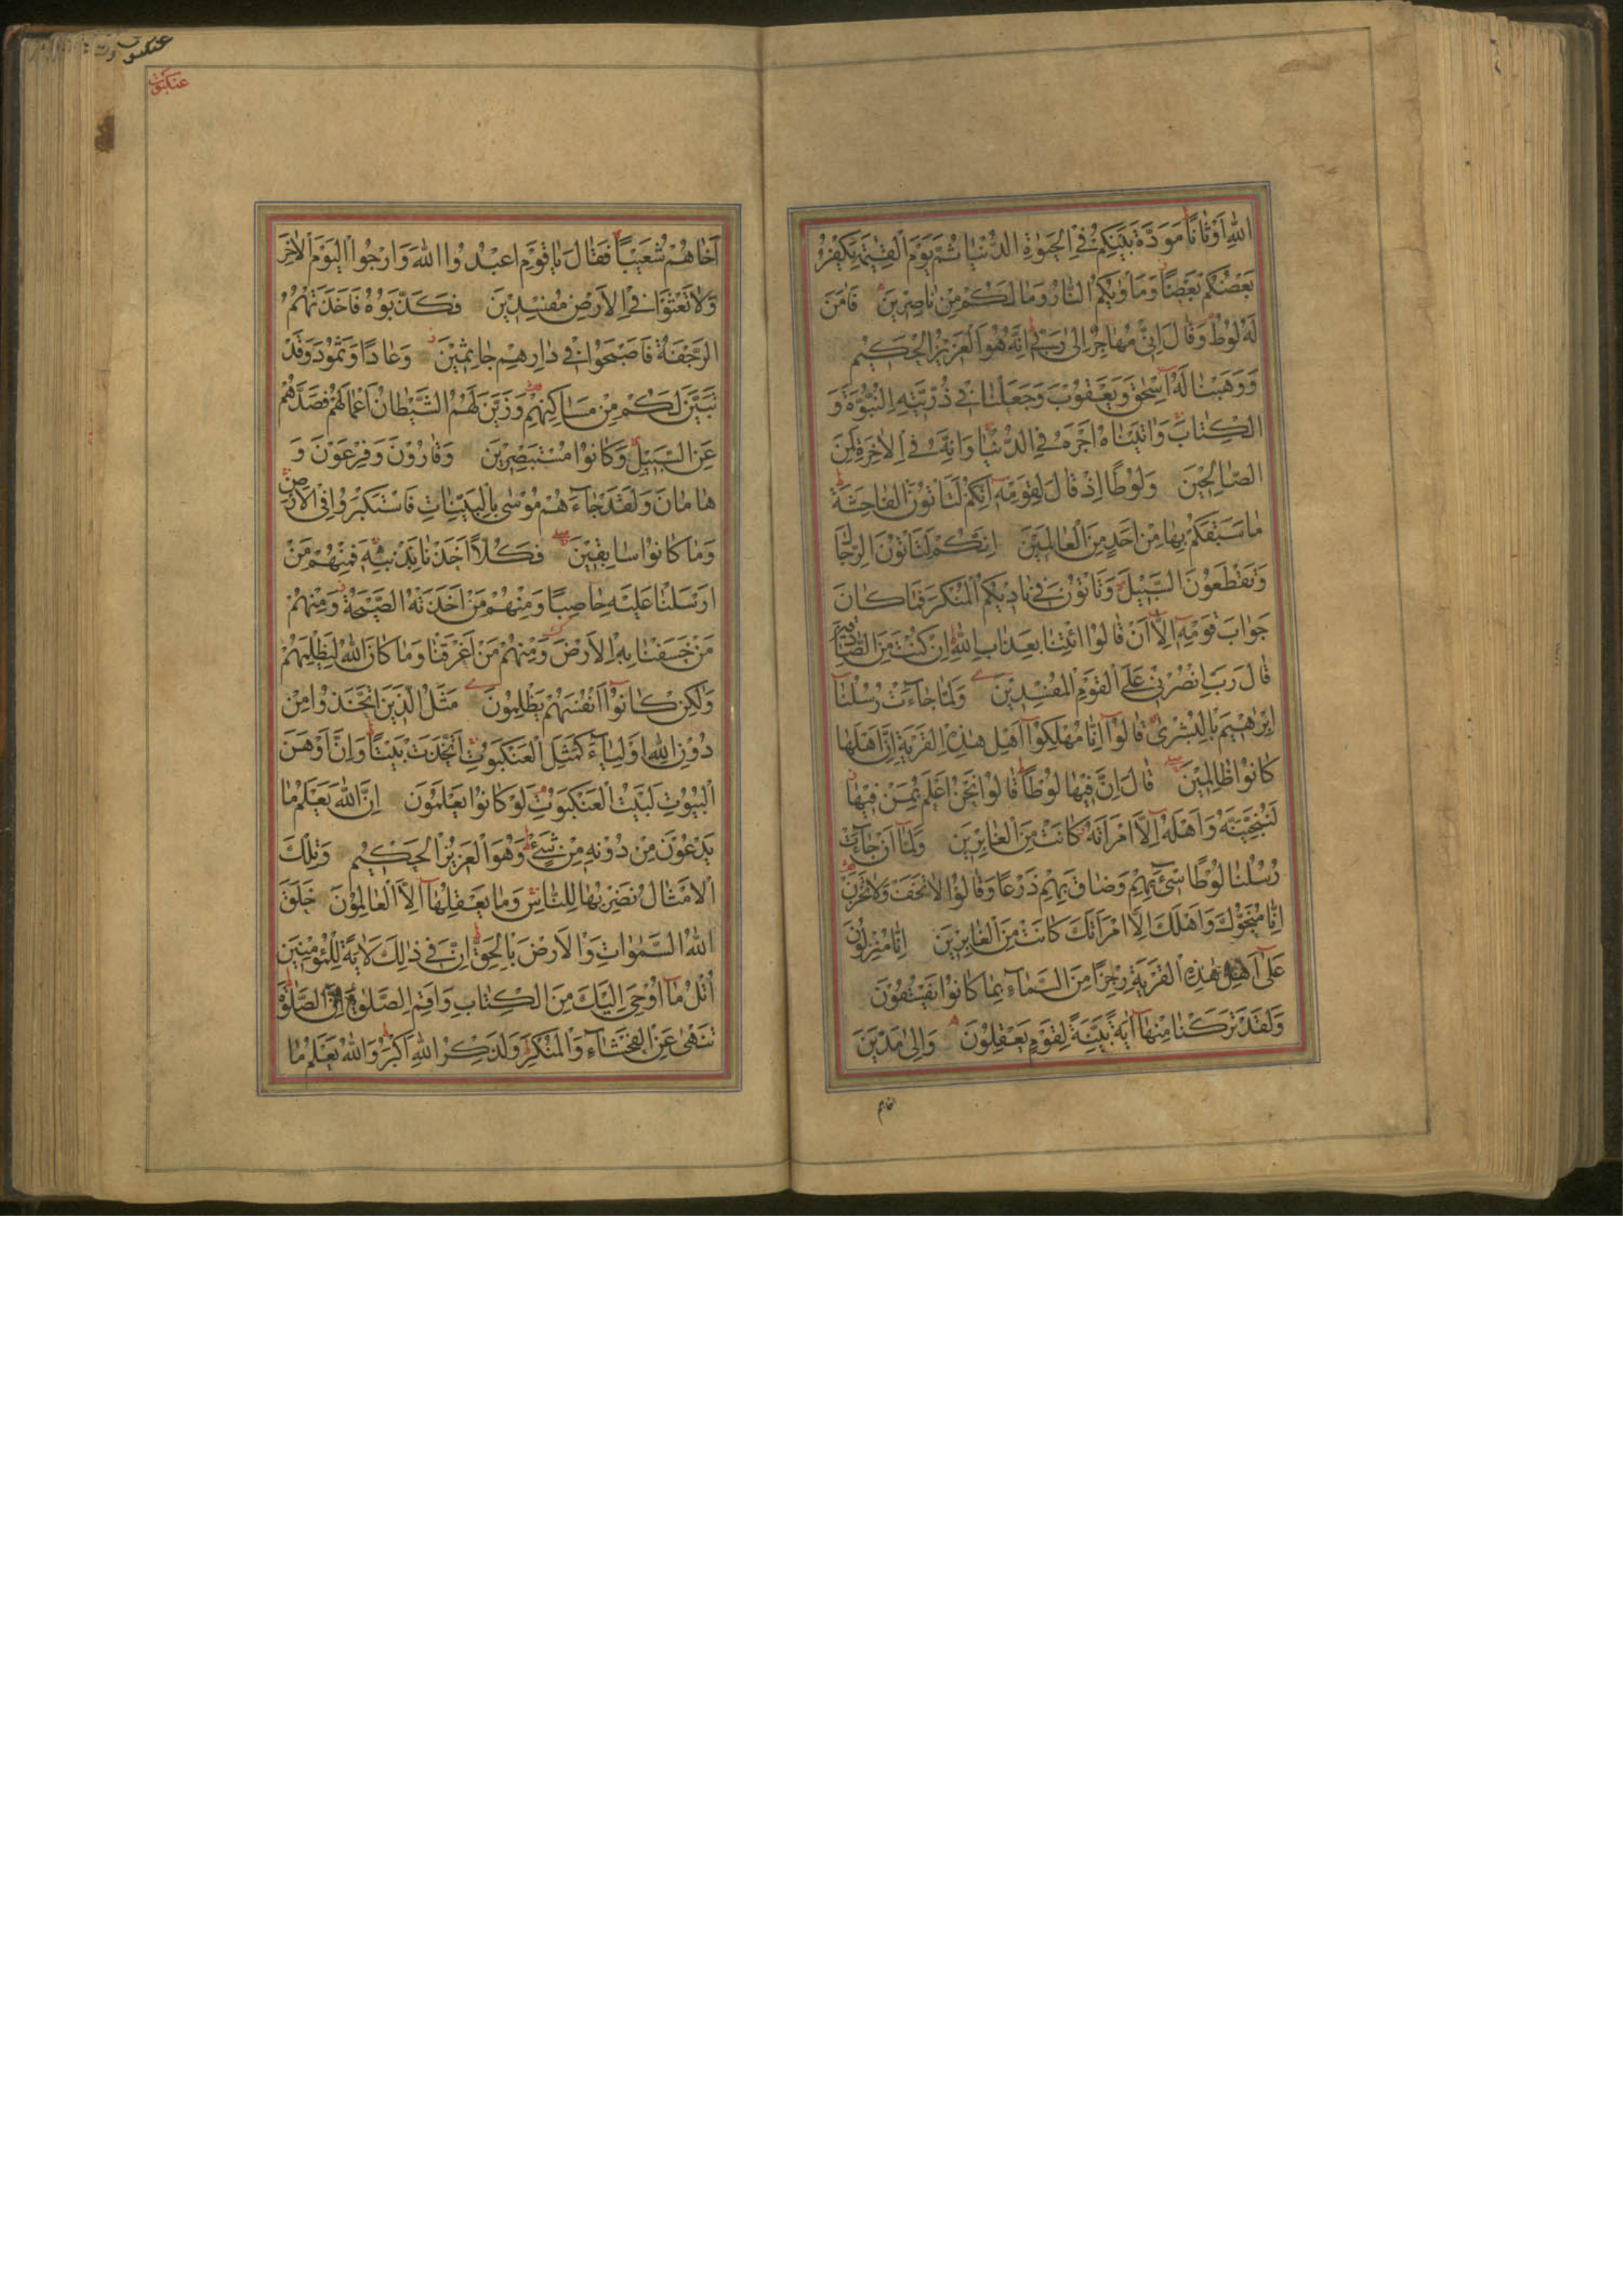 اللهِ اَوْثَانًا مَوَدَّةَ بَيْنِكُمْ فِي الْحَيٰوةِ الدُّنْيَا ثُمَّ يَوْمَ الْقِيٰمَةِ يَكْفُرُ
بَعْضُكُمْ بِبَعْضٍ وَمَاْوٰيكُمُ النَّارُ وَمَا لَكُمْ مِنْ نَاصِرِينَ فَاٰمَنَ
لَهُ لُوطٌ وَقَالَ اِنِّي مُهَاجِرٌ اِلٰى رَبِّي اِنَّهُ هُوَ الْعَزِيزُ الْحَكِيمُ
وَوَهَبْنَا لَهُ اِسْحٰقَ وَيَعْقُوبَ وَجَعَلْنَا فِي ذُرِّيَّتِهِ النُّبُوَّةَ وَ
الْكِتَابَ وَاٰتَيْنَاهُ اَجْرَهُ فِي الدُّنْيَا وَاِنَّهُ فِي الْاٰخِرَةِ لَمِنَ
الصَّالِحِينَ وَلُوطًا اِذْ قَالَ لِقَوْمِهِ اَئِنَّكُمْ لَتَاْتُونَ الْفَاحِشَةَ
مَا سَبَقَكُمْ بِهَا مِنْ اَحَدٍ مِنَ الْعَالَمِينَ اَئِنَّكُمْ لَتَاْتُونَ الرِّجَالَ
وَتَقْطَعُونَ السَّبِيلَ وَتَاْتُونَ فِي نَادِيكُمُ الْمُنْكَرَ فَمَا كَانَ
جَوَابَ قَوْمِهِ اِلَّا اَنْ قَالُوا ائْتِنَا بِعَذَابِ اللهِ اِنْ كُنْتَ مِنَ الصَّادِقِينَ
قَالَ رَبِّ انْصُرْنِي عَلَى الْقَوْمِ الْمُفْسِدِينَ وَلَمَّا جَاءَتْ رُسُلُنَا
اِبْرٰهِيمَ بِالْبُشْرٰى قَالُوا اِنَّا مُهْلِكُوا اَهْلِ هٰذِهِ الْقَرْيَةِ اِنَّ اَهْلَهَا
كَانُوا ظَالِمِينَ قَالَ اِنَّ فِيهَا لُوطًا قَالُوا نَحْنُ اَعْلَمُ بِمَنْ فِيهَا
لَنُنَجِّيَنَّهُ وَاَهْلَهُ اِلَّا امْرَاَتَهُ كَانَتْ مِنَ الْغَابِرِينَ وَلَمَّا اَنْ جَاءَتْ
رُسُلُنَا لُوطًا سِيءَ بِهِمْ وَضَاقَ بِهِمْ ذَرْعًا وَقَالُوا لَا تَخَفْ وَلَا تَحْزَنْ
اِنَّا مُنَجُّوكَ وَاَهْلَكَ اِلَّا امْرَاَتَكَ كَانَتْ مِنَ الْغَابِرِينَ اِنَّا مُنْزِلُونَ
عَلٰى اَهْلِ هٰذِهِ الْقَرْيَةِ رِجْزًا مِنَ السَّمَاءِ بِمَا كَانُوا يَفْسُقُونَ
وَلَقَدْ تَرَكْنَا مِنْهَا اٰيَةً بَيِّنَةً لِقَوْمٍ يَعْقِلُونَ وَاِلٰى مَدْيَنَ
اخاهم
عنكبوت
عنكبوت
اَخَاهُمْ شُعَيْبًا فَقَالَ يَا قَوْمِ اعْبُدُوا اللهَ وَارْجُوا الْيَوْمَ الْاٰخِرَ
وَلَا تَعْثَوْا فِي الْاَرْضِ مُفْسِدِينَ فَكَذَّبُوهُ فَاَخَذَتْهُمُ
الرَّجْفَةُ فَاَصْبَحُوا فِي دَارِهِمْ جَاثِمِينَ وَعَادًا وَثَمُودَ وَقَدْ
تَبَيَّنَ لَكُمْ مِنْ مَسَاكِنِهِمْ وَزَيَّنَ لَهُمُ الشَّيْطَانُ اَعْمَالَهُمْ فَصَدَّهُمْ
عَنِ السَّبِيلِ وَكَانُوا مُسْتَبْصِرِينَ وَقَارُونَ وَفِرْعَوْنَ وَ
هَامَانَ وَلَقَدْ جَاءَهُمْ مُوسٰى بِالْبَيِّنَاتِ فَاسْتَكْبَرُوا فِي الْاَرْضِ
وَمَا كَانُوا سَابِقِينَ فَكُلًّا اَخَذْنَا بِذَنْبِهِ فَمِنْهُمْ مَنْ
اَرْسَلْنَا عَلَيْهِ حَاصِبًا وَمِنْهُمْ مَنْ اَخَذَتْهُ الصَّيْحَةُ وَمِنْهُمْ
مَنْ خَسَفْنَا بِهِ الْاَرْضَ وَمِنْهُمْ مَنْ اَغْرَقْنَا وَمَا كَانَ اللهُ لِيَظْلِمَهُمْ
وَلٰكِنْ كَانُوا اَنْفُسَهُمْ يَظْلِمُونَ مَثَلُ الَّذِينَ اتَّخَذُوا مِنْ
دُونِ اللهِ اَوْلِيَاءَ كَمَثَلِ الْعَنْكَبُوتِ اتَّخَذَتْ بَيْتًا وَاِنَّ اَوْهَنَ
الْبُيُوتِ لَبَيْتُ الْعَنْكَبُوتِ لَوْ كَانُوا يَعْلَمُونَ اِنَّ اللهَ يَعْلَمُ مَا
يَدْعُونَ مِنْ دُونِهِ مِنْ شَيْءٍ وَهُوَ الْعَزِيزُ الْحَكِيمُ وَتِلْكَ
الْاَمْثَالُ نَضْرِبُهَا لِلنَّاسِ وَمَا يَعْقِلُهَا اِلَّا الْعَالِمُونَ خَلَقَ
اللهُ السَّمٰوَاتِ وَالْاَرْضَ بِالْحَقِّ اِنَّ فِي ذٰلِكَ لَاٰيَةً لِلْمُؤْمِنِينَ
اُتْلُ مَا اُوحِيَ اِلَيْكَ مِنَ الْكِتَابِ وَاَقِمِ الصَّلٰوةَ اِنَّ الصَّلٰوةَ
تَنْهٰى عَنِ الْفَحْشَاءِ وَالْمُنْكَرِ وَلَذِكْرُ اللهِ اَكْبَرُ وَاللهُ يَعْلَمُ مَا